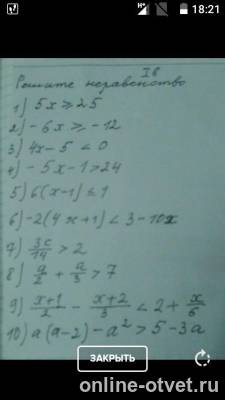 18:21
I в
Решите неравенство
1) 5x ≥ 25
2) -6x ≥ -12
3) 4x-5 < 0
4) -5x-1 > 24
5) 6(x-1) ≤ 1
6) -2(4x+1) < 3-10x
7) 3c/14 > 2
8) a/2 + a/3 > 7
9) x+1/2 - x+2/3 < 2 + x/6
10) a(a-2) - a² > 5-3a
ЗАКРЫТЬ
online-otvet.ru